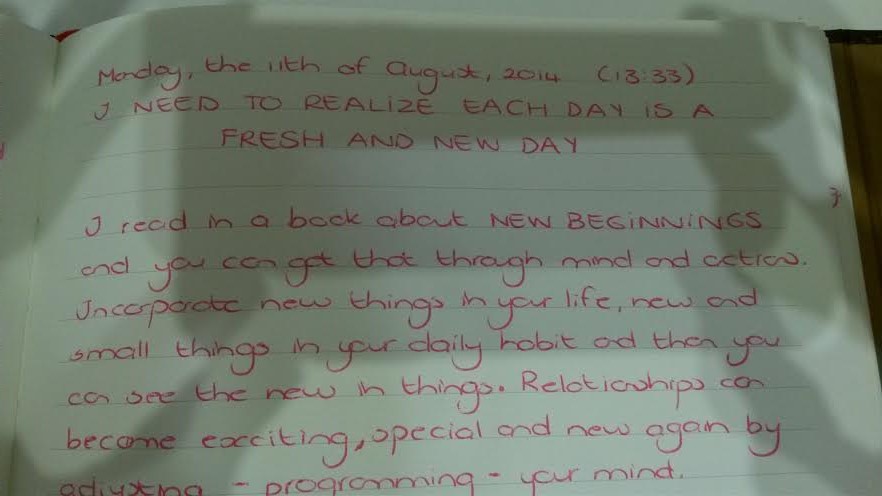 Monday, the 11th of August, 2014 (13:33)
I NEED TO REALIZE EACH DAY IS A
FRESH AND NEW DAY
I read in a book about NEW BEGINNINGS
and you can get that through mind and action.
Incorporate new things in your life, new and
small things in your daily habit and then you
can see the new in things. Relationships can
become excciting, special and new again by
adjusting - programming - your mind.